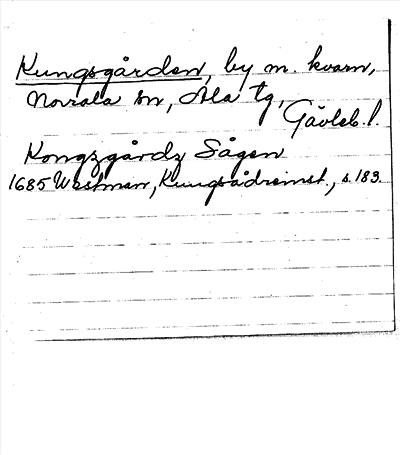 Kungsgården, by m. kvarn,
Norrala sn, Ala tg,
Gävleb. l.
Kongzgårdz Sågen
1685 Westman, Kungsådreinst., s. 183.